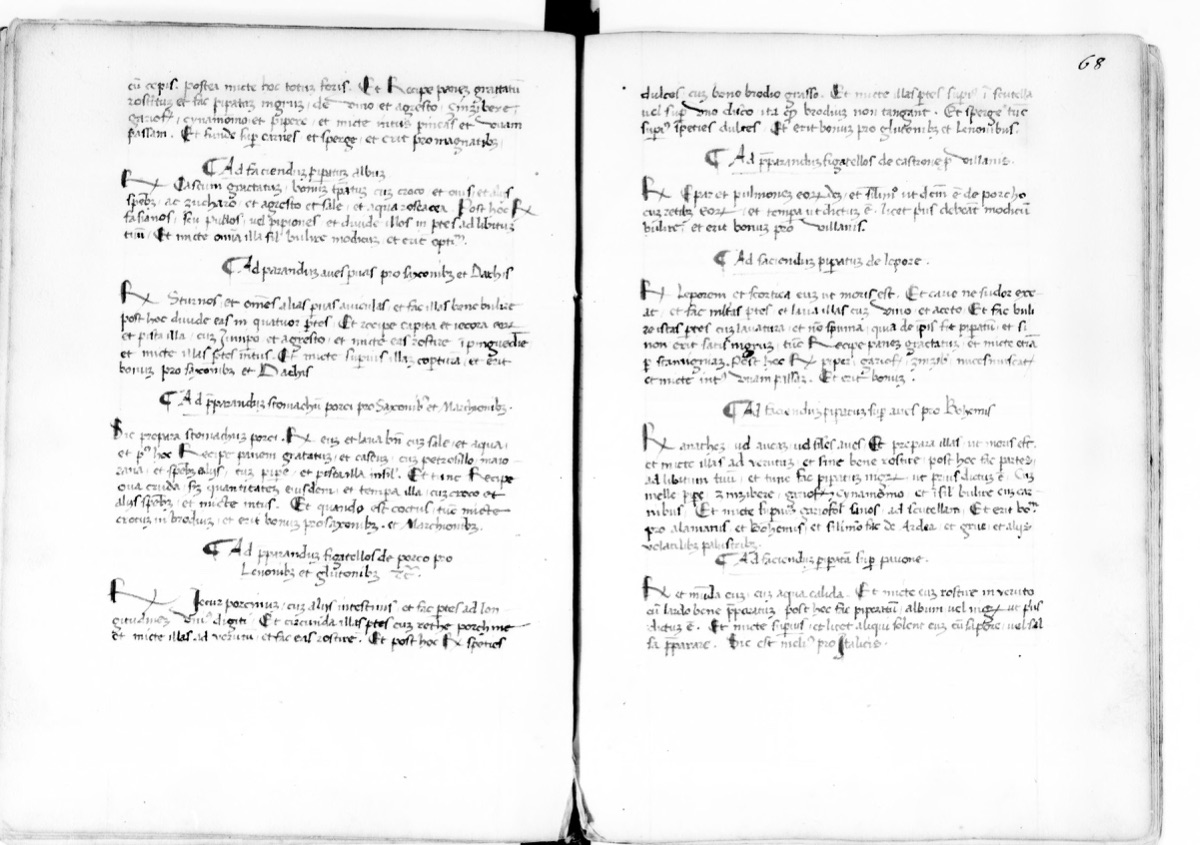 cu cepis. postea micte hoc totum foris. Et Recipe panem grattatu
rostitum et fac piperatam nigrum, de vino et agresto, zinzibere,
gariof, cynamomo et pipere, et micte intus pineas et uvam
passam. Et funde sup carnes et sperge, et erit pro magnatibz.
Ad faciendum piperatum album
Rx Caseum gractatum, bonum cum croco et ovis, et aliis
spebz, ac zucharo, et agresto et sale, et aqua rosacea. Post hoc Rx
fasianos, seu pullos, vel pipiones et divide illos in ptes ad libitum
tuu. Et micte omnia illa sil bulire modicum, et erit opti.
Ad parandum aves parvas pro saxonibz et Dachis
Rx Sturnos et omnes alias parvas aviculas, et fac illas bene bulire
post hoc divide eas in quatuor ptes. Et recipe capita et iecora eorum
et pista illa, cum et agresto, et micte eas rostire i pinguedine
et micte illas intus. Et micte superius illam copturam, et erit
bonum pro saxonibz et Dachis
Ad pparandum stomachum porci pro Saxonibz et Marchionibz.
Sic prepara stomachum porci. Rx eum et lava bn cum sale, et aqua,
et p hoc Recipe panem gratatum, et caseum, cum petrosillo, maio
rana, et spebz aliis, cum pipe, et pista illa insil. Et tunc Recipe
ova cruda, quantitatem eiusdem, et tempa illa, cum croco et
aliis spebz, et micte intus. Et quando est coctus, tuc micte
crocum in brodium, et erit bonum pro saxonibz, et Marchionibz.
Ad pparandum figatellos de porco pro
Lenonibz et glutonibz
Rx Iecur porcinum, cum aliis intestinis, et fac ptes ad lon
gitudinem digiti. Et circunda illas ptes cum rethe porchine
et micte illas ad verutum et fac eas rostire. Et post hoc Rx species
68
dulces cum bono brodio grasso. Et micte illas ptes sup i scutella
vel sup uno disco ita brodium non tangant. Et sperge tuc
supra species dulces. Et erit bonum pro glutonibz et Lenonibus.
Ad pparandum figatellos de castrone p villanis.
Rx Epar et pulmones eorum, et ut dictum e de porcho
cum retibz et tempa ut dictum e, licet prius debeat modicum
bulire, et erit bonum pro villanis.
Ad faciendum piperatum de lepore.
Rx Leporem et scortica eum ut moris est. Et cave ne sudor exe
at, et fac ptes et lava illas cum vino et aceto. Et fac buli
re istas ptes cum lavatura, et no spuma, quia de ipsis fit piperatu, et si
non erit satis nigrum, tuc Recipe panem gractatum, et micte
p stamignam. Post hoc Rx piper, gariof, zinzib, nucesmuscat
et micte int uvam passam. Et erit bonum.
Ad faciendum piperatum sup aves pro Bohemis
Rx anathes vel aucas, vel siles aves Et prepara illas, ut moris est.
et micte illas ad verutum, et sine bene rostire, post hoc fac partes
ad libitum tuu, et tunc fac piperatum nigrum, ut prius dictum e. Cum
melle pipe, zinzibere, gariof, cynamomo, et bulire cum car
nibus. Et micte superius gariofol sanos, ad scutellam, Et erit bo
pro alamanis, et Bohemis, et fac de Ardea, et grue, et aliis
volatilibz palustribz.
Ad faciendum piperatu sup pavone.
Rx et munda eum, cum aqua calida. Et micte eum rostire in veruto
cu lardo bene pparatum, post hoc fac piperatu, album vel nigrum ut prius
dictum e. Et micte superius, et licet aliqui solent eum cu sapore, vel sal
sa pparare. Sic est meli pro Italicis.